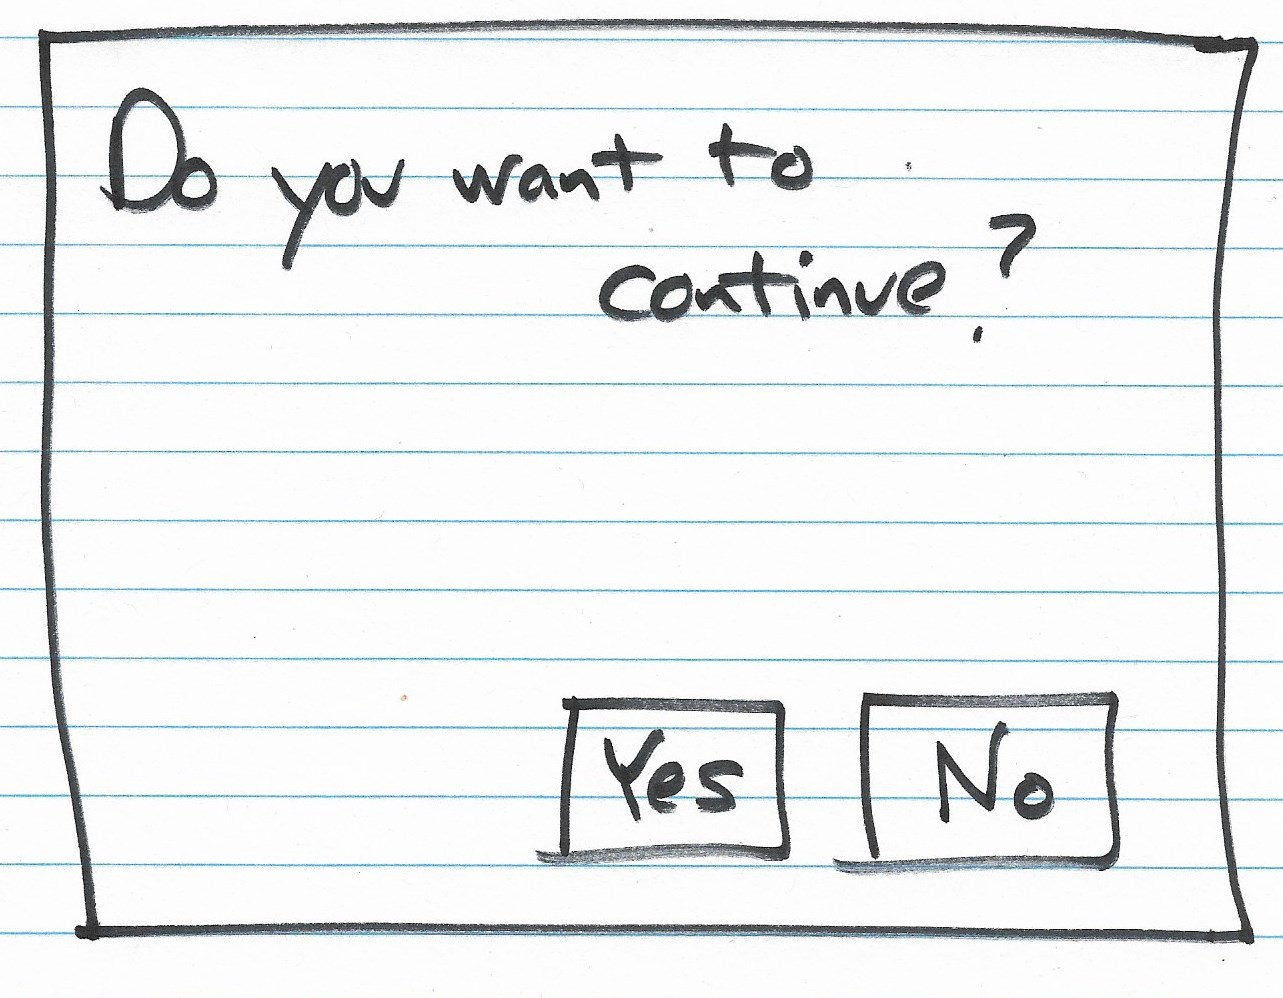 Do you want to
continue?
Yes No